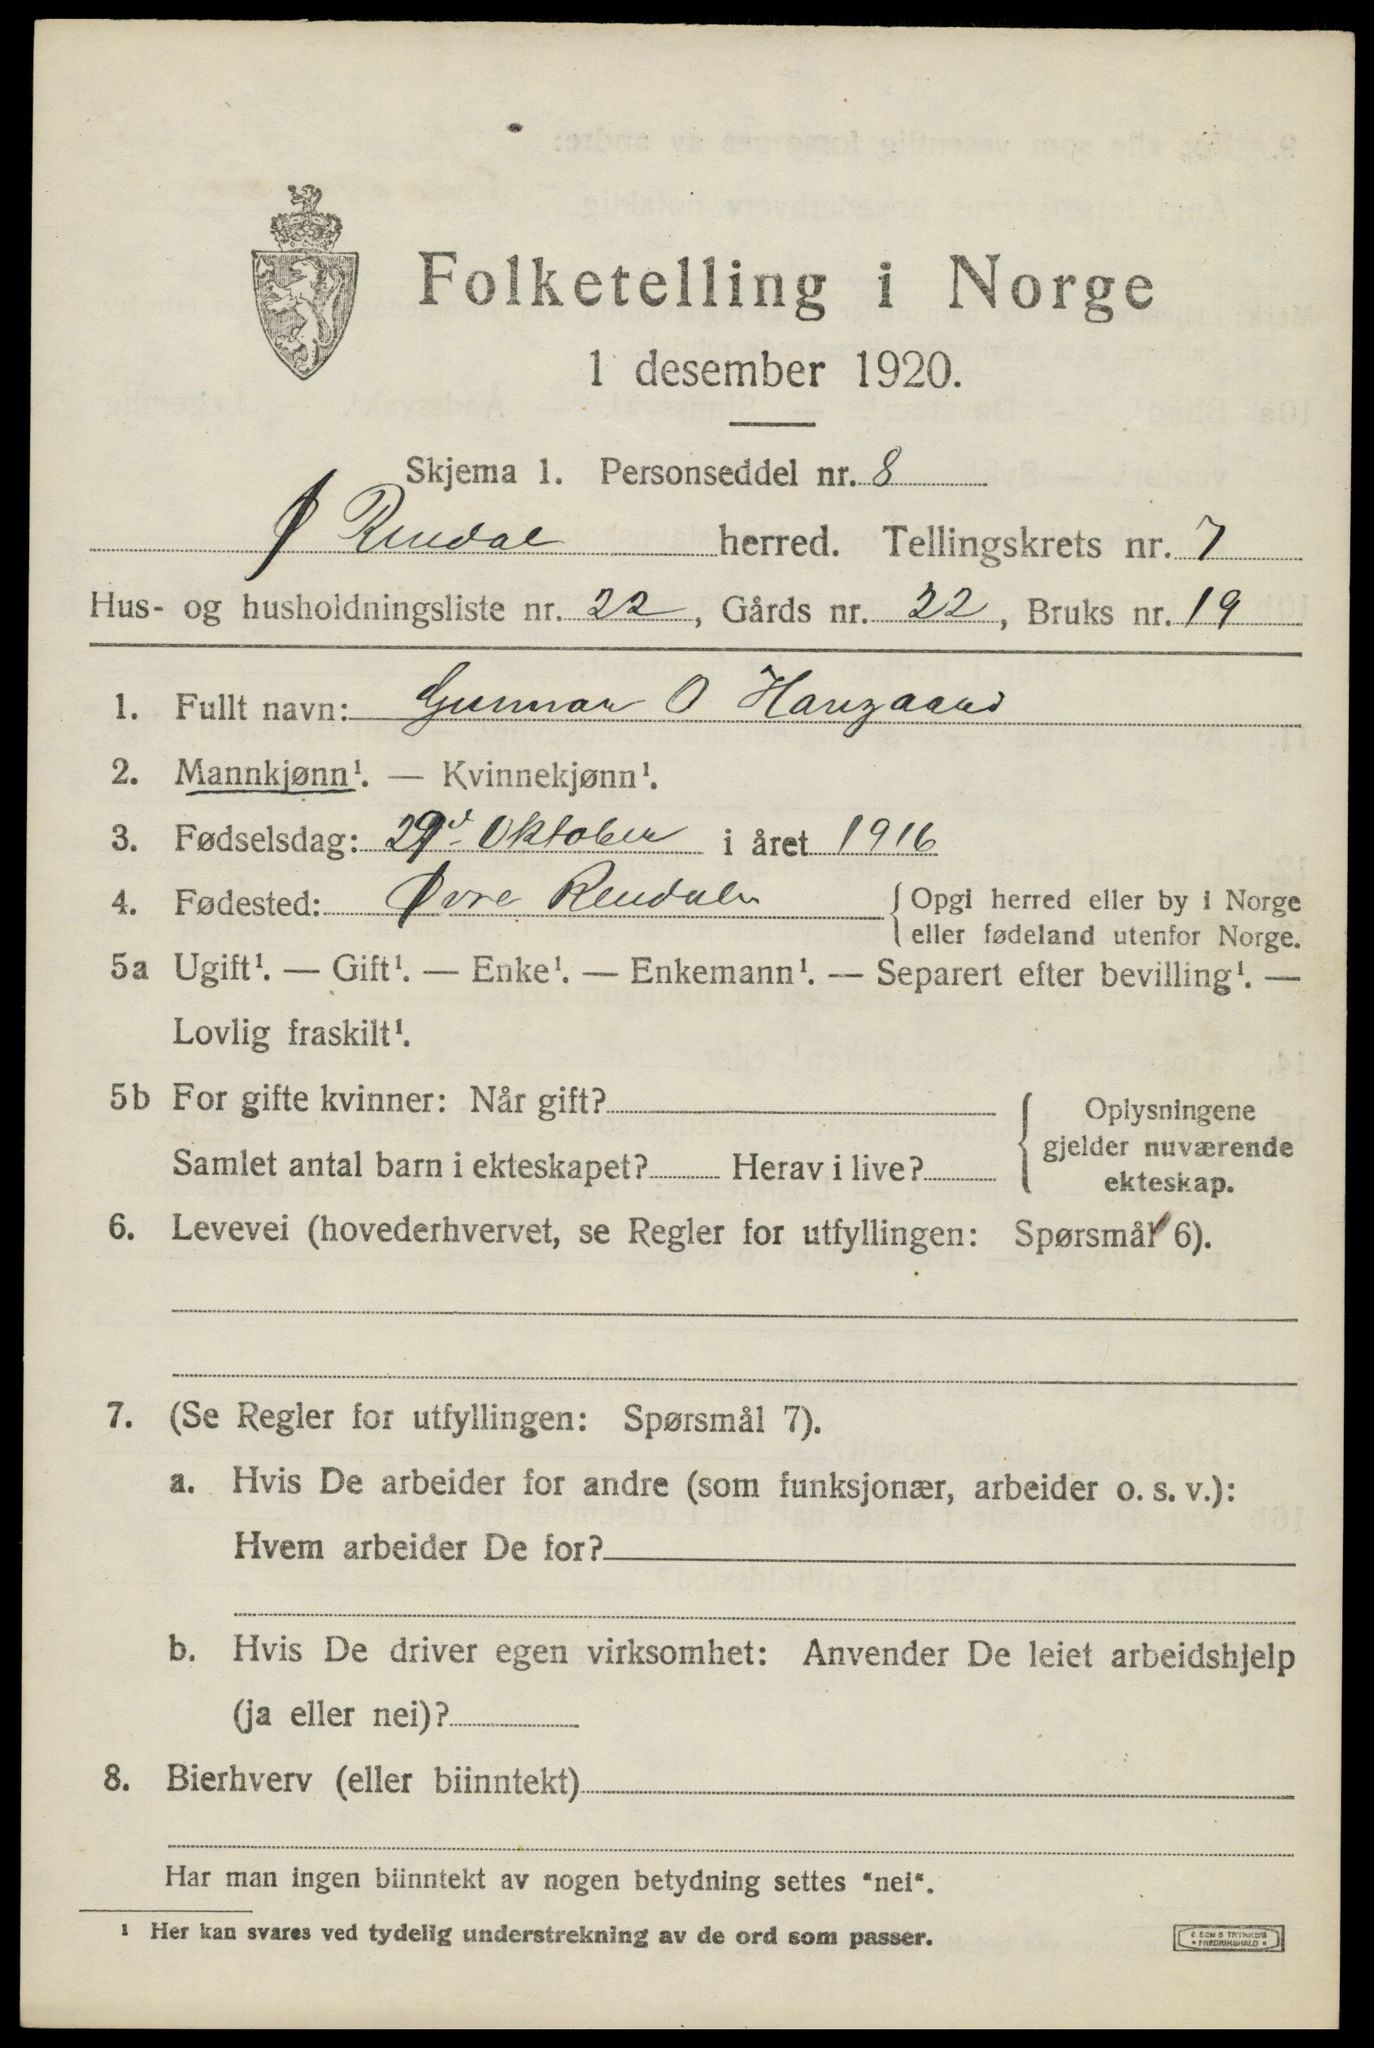 Folketelling i Norge
1 desember 1920.
Skjema 1. Personseddel nr. 8
Ø Rendal herred. Tellingskrets nr. 7
Hus- og husholdningsliste nr. 22, Gårds nr. 22, Bruks nr. 19
1. Fullt navn: Gunnar O Haugaard
2. Mannkjønn¹. — Kvinnekjønn¹.
3. Fødselsdag: 29d Oktober i året 1916
4. Fødested: Øvre Rendalen { Opgi herred eller by i Norge
eller fødeland utenfor Norge.
5a Ugift¹. — Gift¹. — Enke¹. — Enkemann¹. — Separert efter bevilling¹. —
Lovlig fraskilt¹.
5b For gifte kvinner: Når gift?
Samlet antal barn i ekteskapet? Herav i live?
{ Oplysningene
gjelder nuværende
ekteskap.
6. Levevei (hovederhvervet, se Regler for utfyllingen: Spørsmål 6).
7. (Se Regler for utfyllingen: Spørsmål 7).
a. Hvis De arbeider for andre (som funksjonær, arbeider o. s. v.):
Hvem arbeider De for?
b. Hvis De driver egen virksomhet: Anvender De leiet arbeidshjelp
(ja eller nei)?
8. Bierhverv (eller biinntekt)
Har man ingen biinntekt av nogen betydning settes "nei".
¹ Her kan svares ved tydelig understrekning av de ord som passer.
FREDRIKSHALD